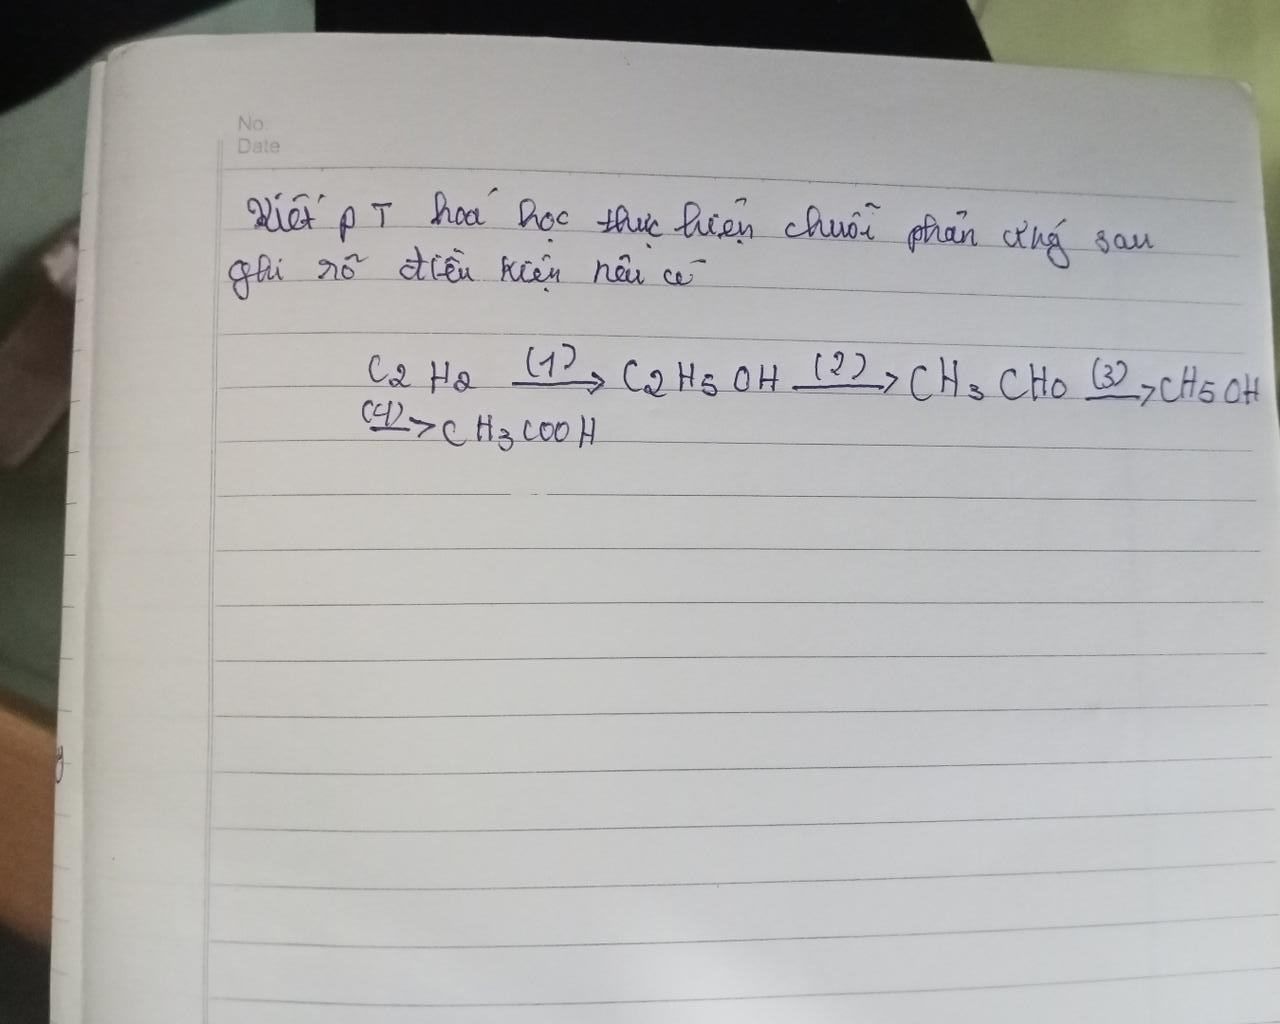 No.
Date
Viết PT hoá học thực hiện chuỗi phản ứng sau
ghi rõ điều kiện nếu có
C2H2 (1)→ C2H5OH (2)→ CH3CHO (3)→ CH5OH
(4)→ CH3COOH